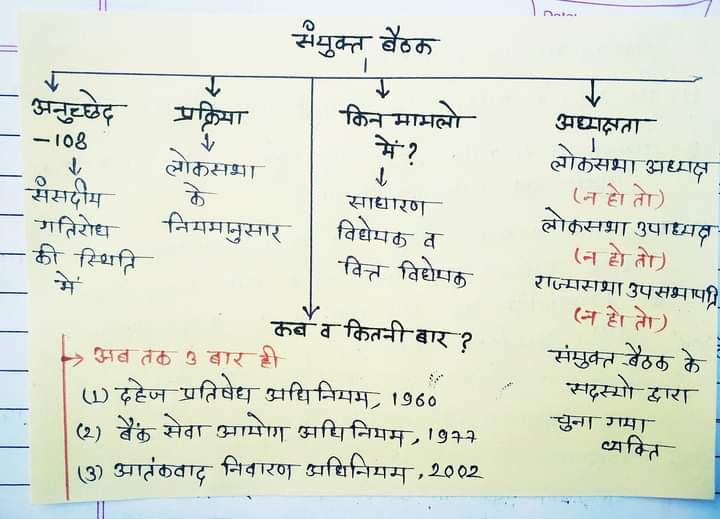 संयुक्त बैठक
अनुच्छेद
-108
संसदीय
गतिरोध
की स्थिति
में
प्रक्रिया
लोकसभा
के
नियमानुसार
किन मामलो
में?
साधारण
विधेयक व
वित्त विधेयक
अध्यक्षता
लोकसभा अध्यक्ष
(न हो तो)
लोकसभा उपाध्यक्ष
(न हो तो)
राज्यसभा उपसभापति
(न हो तो)
संयुक्त बैठक के
सदस्यो द्वारा
चुना गया
व्यक्ति
कब व कितनी बार?
अब तक 3 बार ही
(1) दहेज प्रतिषेध अधिनियम, 1960
(2) बैंक सेवा आयोग अधिनियम, 1977
(3) आतंकवाद निवारण अधिनियम, 2002